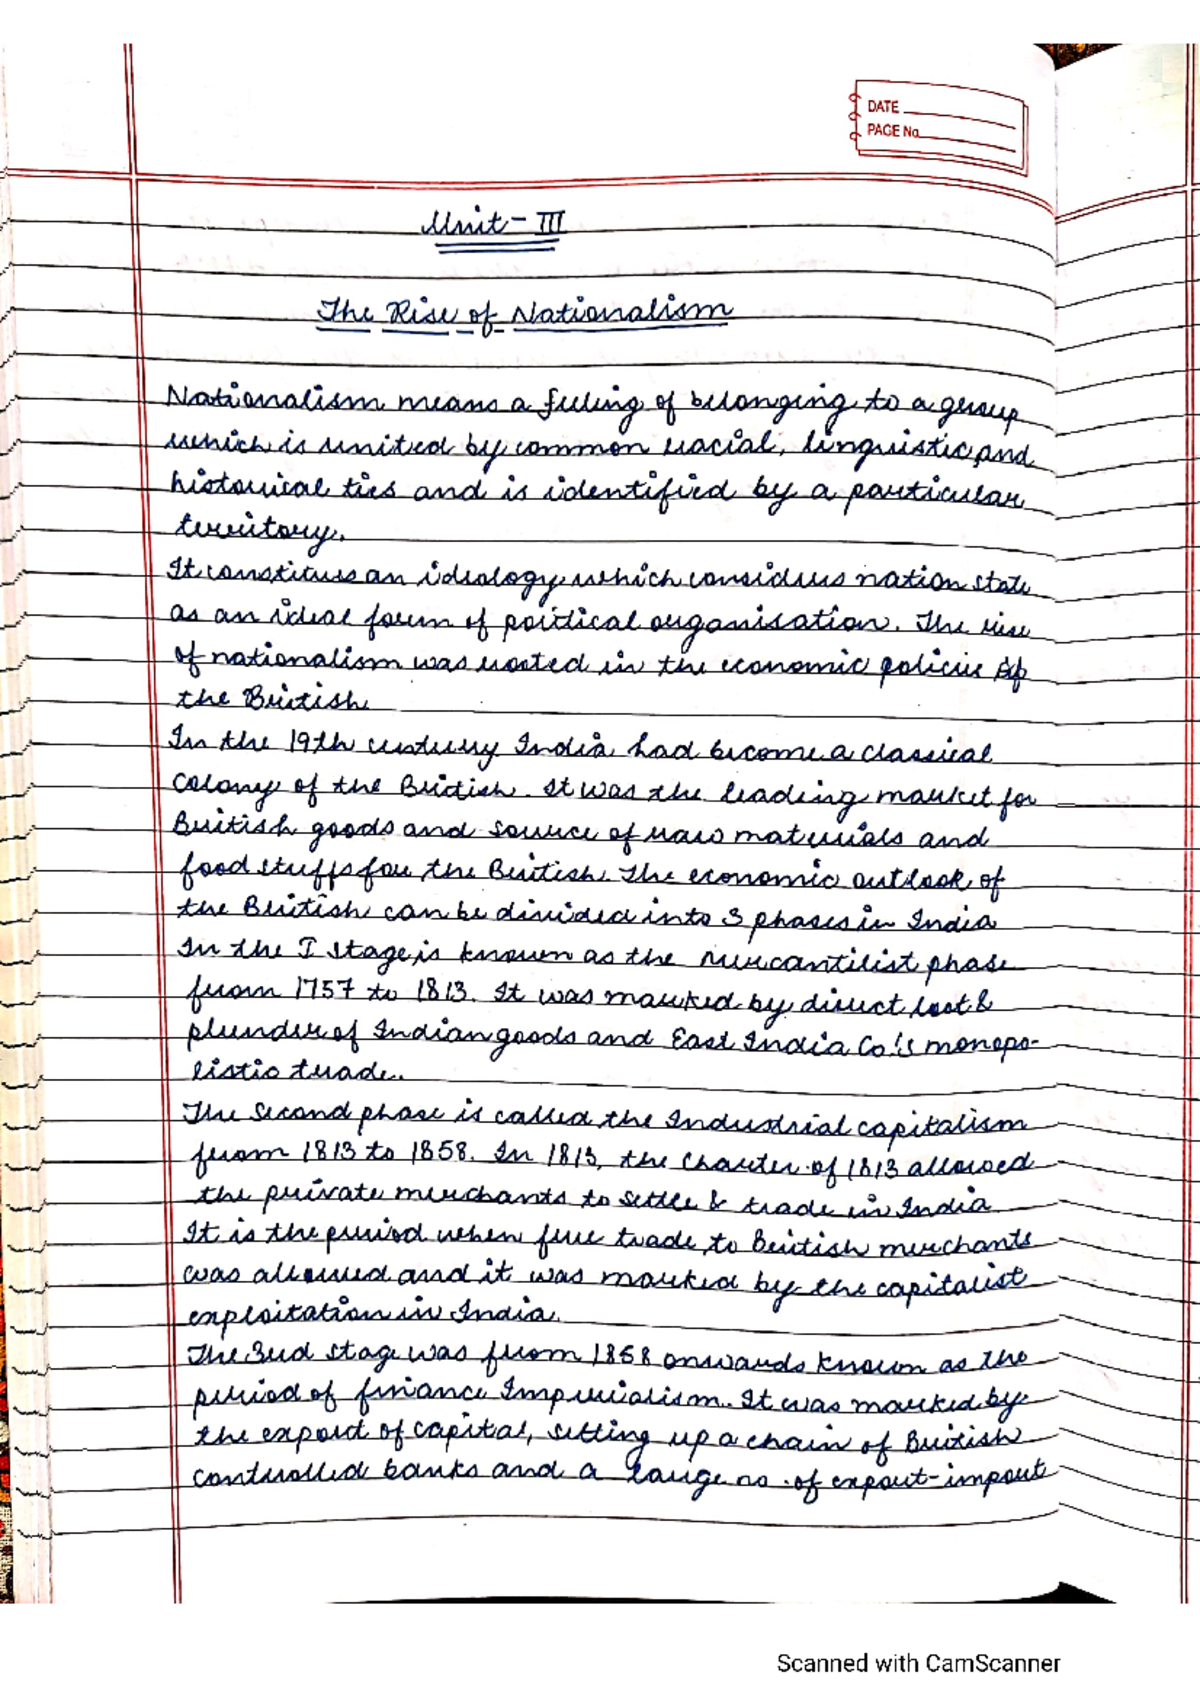 DATE
PAGE No.
Unit - III
The Rise of Nationalism
Nationalism means a feeling of belonging to a group
which is united by common racial, linguistic and
historical ties and is identified by a particular
territory.
It constitues an ideology which considers nation state
as an ideal form of political organisation. The rise
of nationalism was rooted in the economic policies of
the British
In the 19th century India had become a classical
colony of the British. It was the leading market for
British goods and source of raw materials and
food stuffs for the British. The economic outlook of
the British can be divided into 3 phases in India
In the I stage is known as the Mercantilist phase
from 1757 to 1813. It was marked by direct loot &
plunder of Indian goods and East India Co.'s monopo-
listic trade.
The second phase is called the Industrial capitalism
from 1813 to 1858. In 1813, the Charter of 1813 allowed
the private merchants to settle & trade in India
It is the period when free trade to British merchants
was allowed and it was marked by the capitalist
exploitation in India.
The 3rd stage was from 1858 onwards known as the
period of finance Imperialism. It was marked by
the export of capital, setting up a chain of British
controlled banks and a large no. of export-import
Scanned with CamScanner